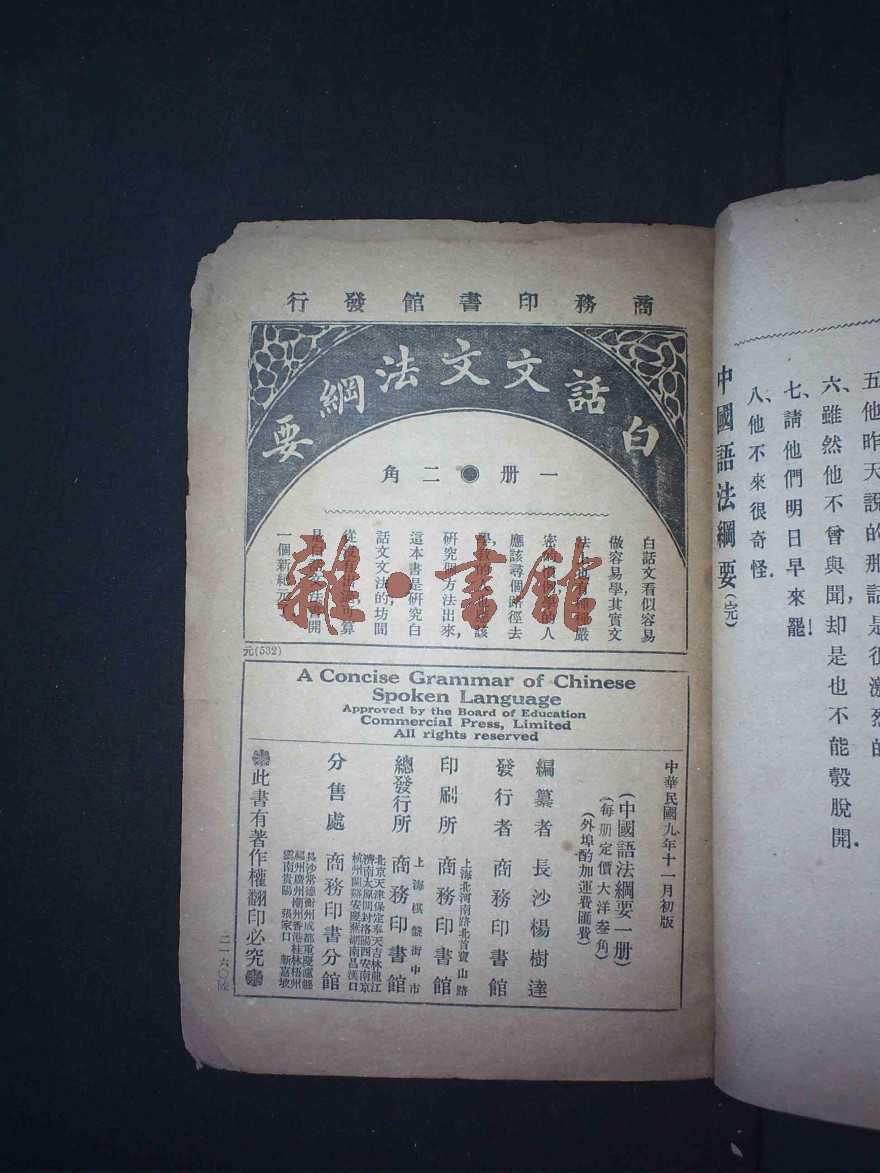 五、他昨天說的那話，是很激烈的
六、雖然他不曾與聞，却是也不能彀脫開．
七、請他們明日早來罷！
八、他不來很奇怪．
中國語法綱要（完）
商務印書館發行
白話文文法綱要
一册●二角
白話文看似容易
做容易學，其實文
法上也有種種嚴
密的學的人
應該尋個路徑去
學，教的人也應該
研究個方法出來，
這本書是研究白
話文文法的，坊間
從沒有出過，可算
是白話文法書開
一個新紀元了
元(532)
A Concise Grammar of Chinese
Spoken Language
Approved by the Board of Education
Commercial Press, Limited
All rights reserved
中華民國九年十一月初版
（中國語法綱要一册）
（每册定價大洋叁角）
（外埠酌加運費匯費）
編纂者 長沙楊樹達
發行者 商務印書館
印刷所 上海北河南路北首寶山路 商務印書館
總發行所 上海棋盤街中市 商務印書館
分售處 北京天津保定奉天吉林龍江
濟南太原開封洛陽西安南京
杭州蘭谿安慶蕪湖南昌漢口
商務印書分館
長沙常德衡州成都重慶瀘縣
福州廣州潮州香港桂林梧州
雲南貴陽 張家口 新嘉坡
此書有著作權翻印必究
二一六〇陸
雜·書館